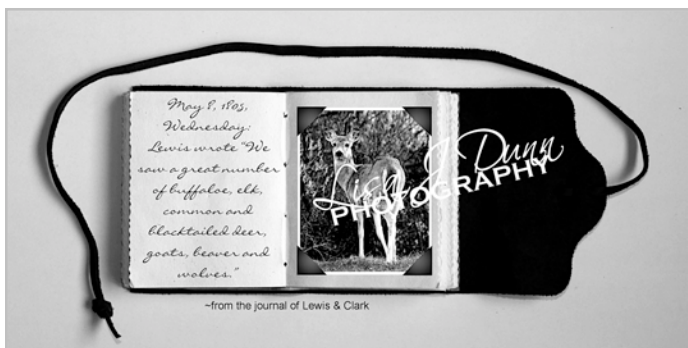 May 8, 1805,
Wednesday:
Lewis wrote "We
saw a great number
of buffaloe, elk,
common and
blacktailed deer,
goats, beaver and
wolves."
J Dunn
PHOTOGRAPHY
~from the journal of Lewis & Clark